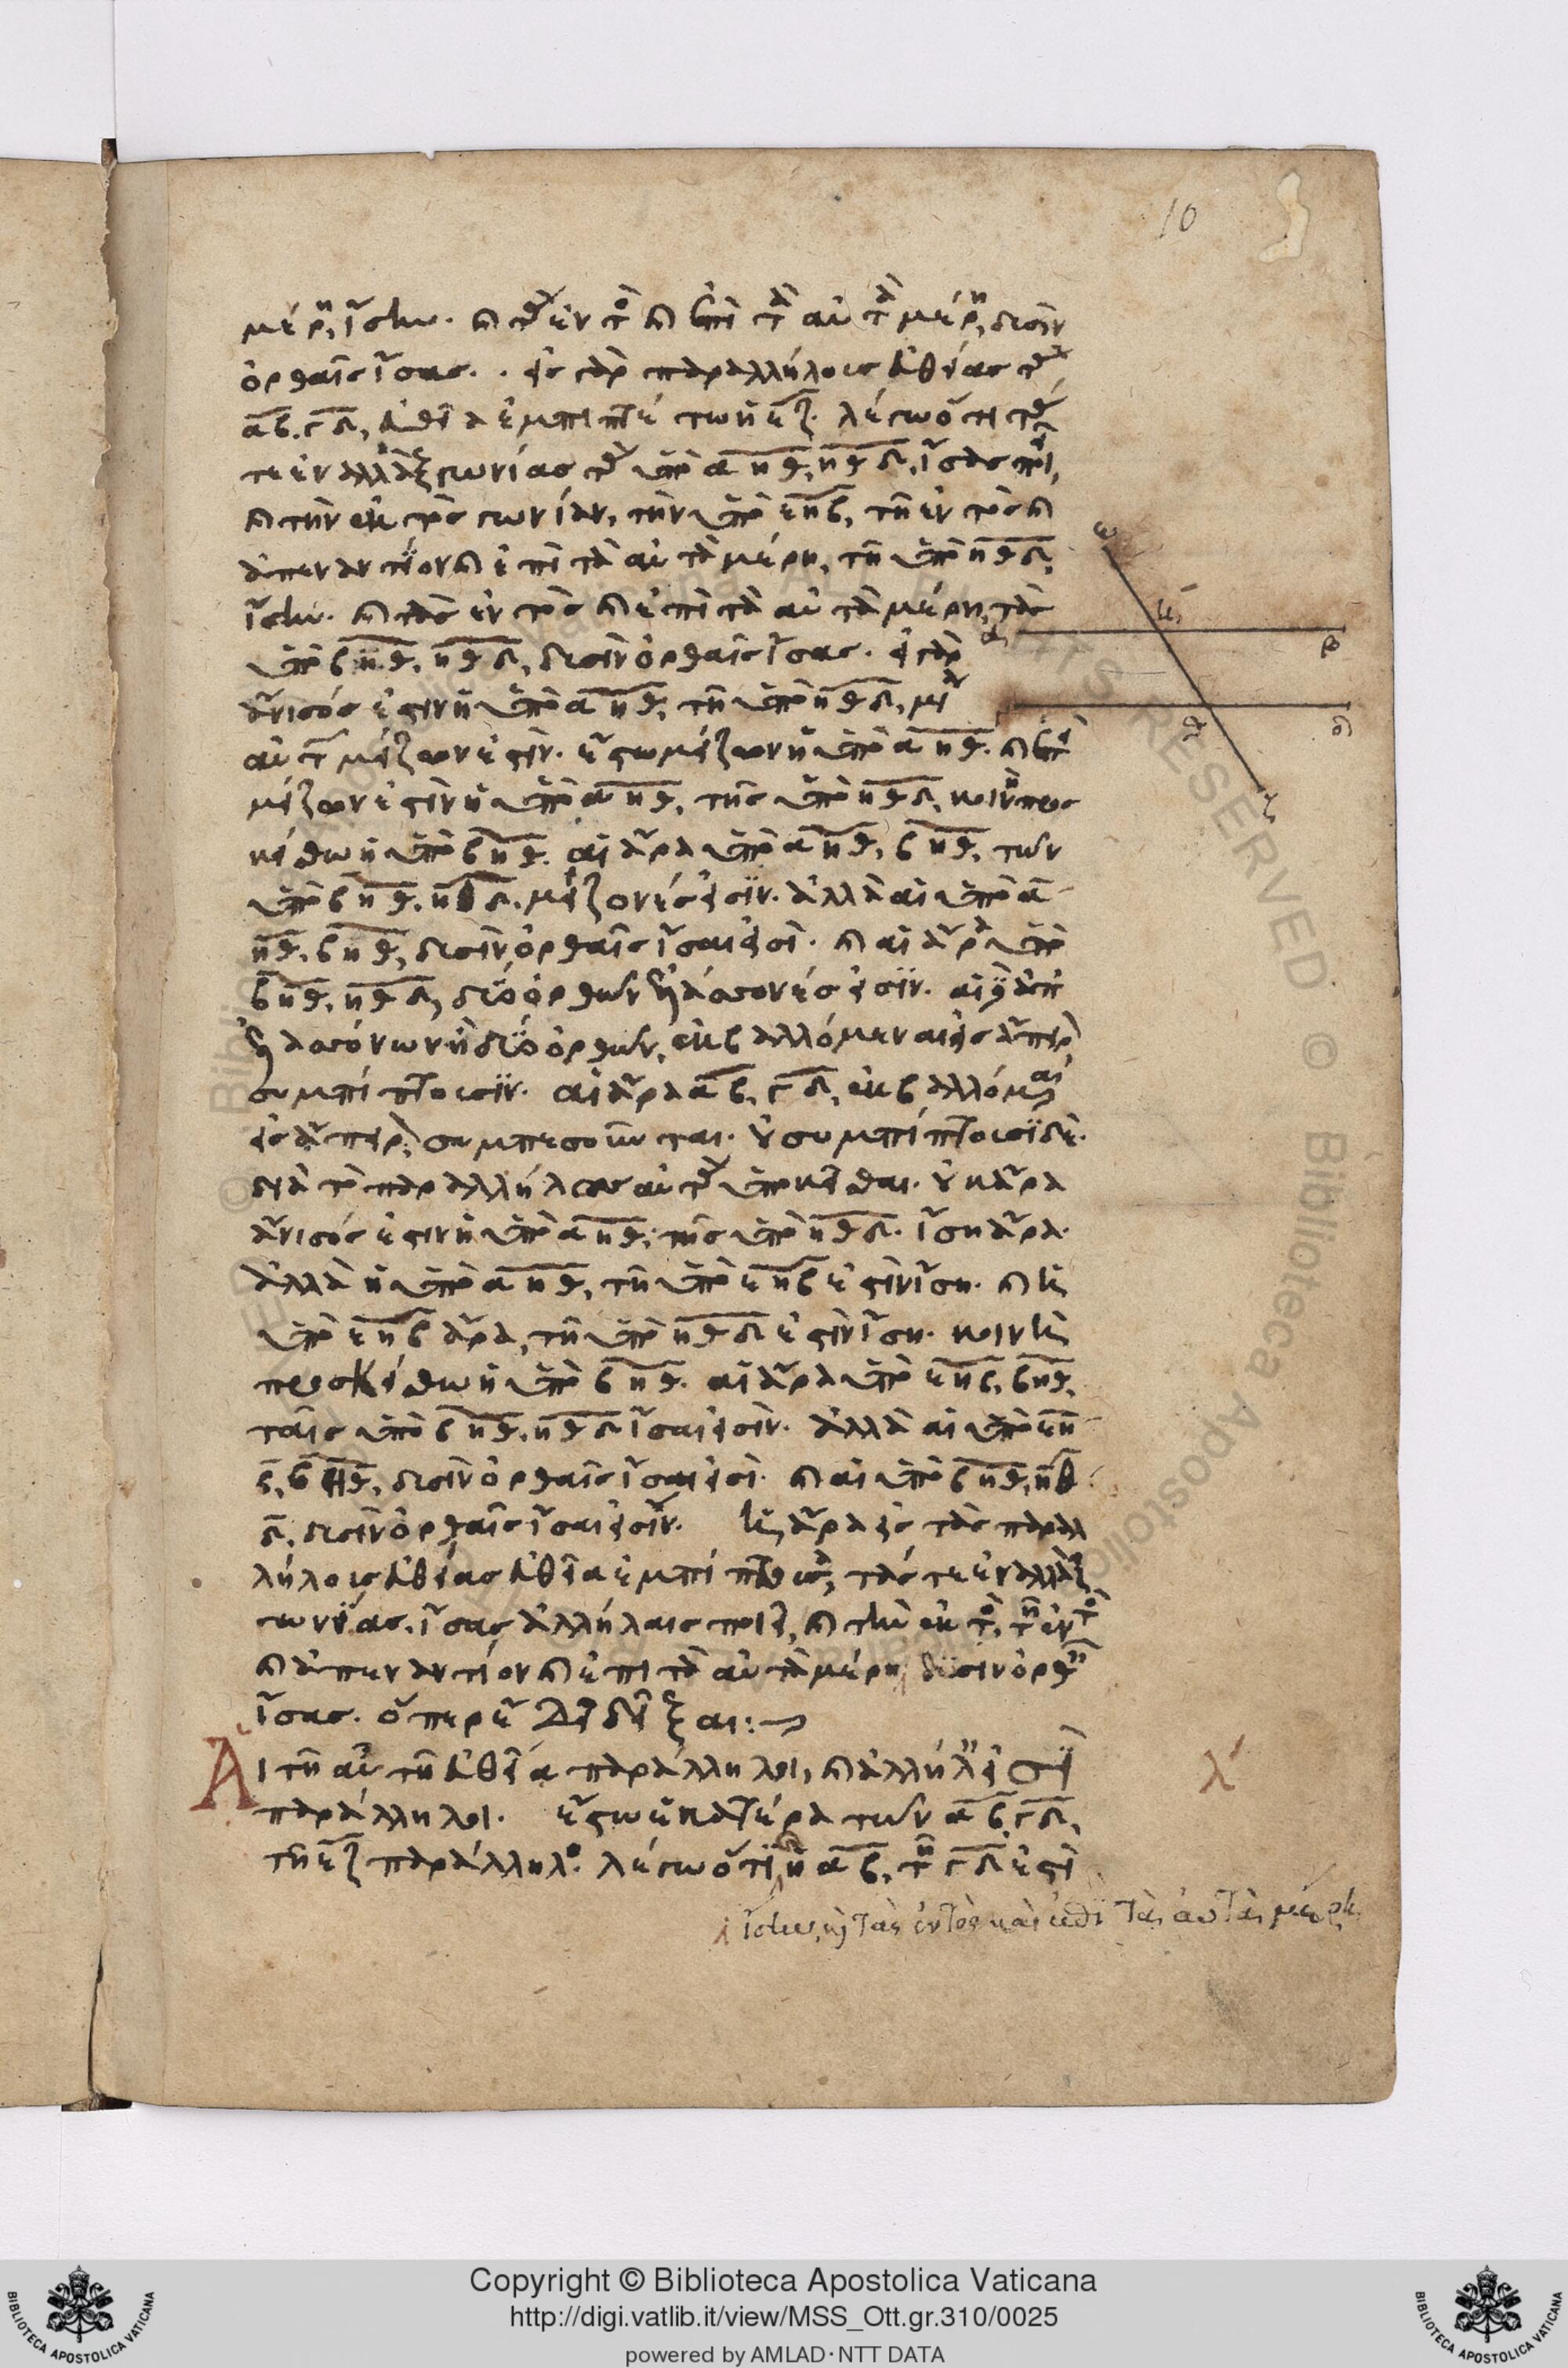 10
μέρη, ἴσην. καὶ τὰς ἐντὸς καὶ ἐπὶ τὰ αὐτὰ μέρη, δυσὶν
ὀρθαῖς ἴσας. εἰς γὰρ παραλλήλους εὐθείας τὰς
α̅β̅. γ̅δ̅, εὐθεῖα ἐμπιπτέτω ἡ ε̅ζ̅. λέγω ὅτι τάς
τε ἐναλλὰξ γωνίας τὰς ὑπὸ α̅η̅θ̅, η̅θ̅δ̅, ἴσας ποιεῖ,
καὶ τὴν ἐκτὸς γωνίαν, τὴν ὑπὸ ε̅η̅β̅, τῇ ἐντὸς καὶ
ἀπεναντίον καὶ ἐπὶ τὰ αὐτὰ μέρη, τῇ ὑπὸ η̅θ̅δ̅,
ἴσην. καὶ τὰς ἐντὸς καὶ ἐπὶ τὰ αὐτὰ μέρη, τὰς
ὑπὸ β̅η̅θ̅, η̅θ̅δ̅, δυσὶν ὀρθαῖς ἴσας. εἰ γὰρ
ἄνισός ἐστιν ἡ ὑπὸ α̅η̅θ̅, τῇ ὑπὸ η̅θ̅δ̅, μία
αὐτῶν μείζων ἐστίν. ἔστω μείζων ἡ ὑπὸ α̅η̅θ̅. καὶ ἐπεὶ
μείζων ἐστὶν ἡ ὑπὸ α̅η̅θ̅, τῆς ὑπὸ η̅θ̅δ̅, κοινὴ προσ
κείσθω ἡ ὑπὸ β̅η̅θ̅. αἱ ἄρα ὑπὸ α̅η̅θ̅, β̅η̅θ̅, τῶν
ὑπὸ β̅η̅θ̅. η̅θ̅δ̅. μείζονές εἰσιν. ἀλλὰ αἱ ὑπὸ α̅
η̅θ̅. β̅η̅θ̅, δυσὶν ὀρθαῖς ἴσαι εἰσί. καὶ αἱ ἄρα ὑπὸ
β̅η̅θ̅, η̅θ̅δ̅, δύο ὀρθῶν ἐλάσσονές εἰσιν. αἱ δὲ ἀπ
ἐλασσόνων ἢ δύο ὀρθῶν, ἐκβαλλόμεναι εἰς ἄπειρον
συμπίπτουσιν. αἱ ἄρα α̅β̅, γ̅δ̅, ἐκβαλλόμεναι
εἰς ἄπειρον, συμπεσοῦνται. οὐ συμπίπτουσι δὲ.
διὰ τὸ παραλλήλους αὐτὰς ὑποκεῖσθαι. οὐκ ἄρα
ἄνισός ἐστιν ἡ ὑπὸ α̅η̅θ̅, τῆς ὑπὸ η̅θ̅δ̅. ἴση ἄρα.
ἀλλὰ ἡ ὑπὸ α̅η̅θ̅, τῇ ὑπὸ ε̅η̅β̅ ἐστὶν ἴση. καὶ ἡ
ὑπὸ ε̅η̅β̅ ἄρα, τῇ ὑπὸ η̅θ̅δ̅ ἐστὶν ἴση. κοινὴ
προσκείσθω ἡ ὑπὸ β̅η̅θ̅. αἱ ἄρα ὑπὸ ε̅η̅β̅, β̅η̅θ̅,
ταῖς ὑπὸ β̅η̅θ̅. η̅θ̅δ̅ ἴσαι εἰσίν. ἀλλὰ αἱ ὑπὸ ε̅η̅
β̅, β̅η̅θ̅, δυσὶν ὀρθαῖς ἴσαι εἰσί. καὶ αἱ ὑπὸ β̅η̅θ̅, η̅θ̅
δ̅, δυσὶν ὀρθαῖς ἴσαι εἰσίν. ἡ ἄρα εἰς τὰς παραλ
λήλους εὐθείας εὐθεῖα ἐμπίπτουσα, τάς τε ἐναλλὰξ
γωνίας. ἴσας ἀλλήλαις ποιεῖ, καὶ τὴν ἐκτὸς, τῇ ἐντὸς
καὶ ἀπεναντίον καὶ ἐπὶ τὰ αὐτὰ μέρη, δυσὶν ὀρθαῖς
ἴσας. ὅπερ ἔδει δεῖξαι:
Αἱ τῇ αὐτῇ εὐθείᾳ παράλληλοι, καὶ ἀλλήλαις εἰσὶ
παράλληλοι. ἔστω ἑκατέρα τῶν α̅β̅, γ̅δ̅,
τῇ ε̅ζ̅ παράλληλος. λέγω ὅτι καὶ ἡ α̅β̅, τῇ γ̅δ̅ ἐστὶ
ἴσην, καὶ τὰς ἐντὸς καὶ ἐπὶ τὰ αὐτὰ μέρη
λ´
ε
η
α
β
γ
θ
δ
ζ
Copyright © Biblioteca Apostolica Vaticana
http://digi.vatlib.it/view/MSS_Ott.gr.310/0025
powered by AMLAD·NTT DATA
BIBLIOTECA APOSTOLICA VATICANA
BIBLIOTECA APOSTOLICA VATICANA